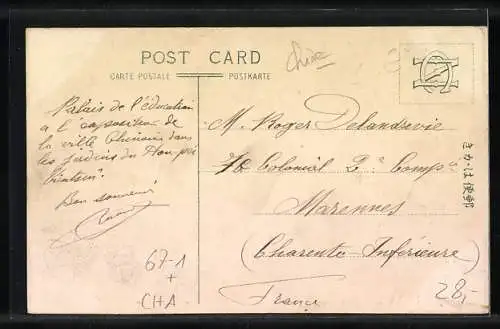 POST CARD
CARTE POSTALE
POSTKARTE
Chine
Palais de l'éducation
a l'exposition de
la ville Chinoise dans
les jardins du
Tientsin.
Bon souvenir
M. Roger Delandrevie
Colonial 2e Compie
Marennes
(Charente Inférieure)
France
きかは便郵
67-1
+
CHA
28,-